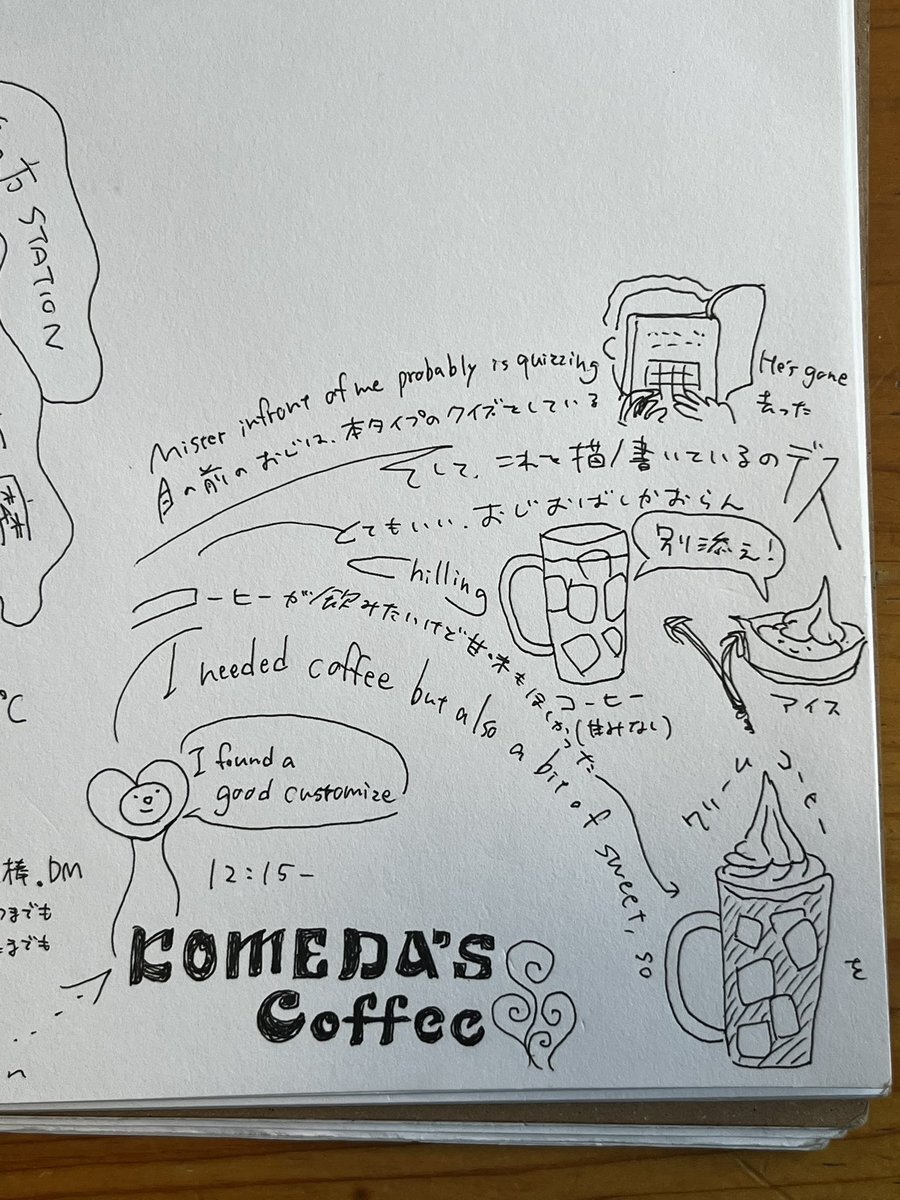 STATION
Mister infront of me probably is quizzing
目の前のおじは、本タイプのクイズをしている
He's gone
去った
そして、これを描/書いているのデス
とてもいい、おじおばしかおらん
Chilling
別添え!
コーヒーが飲みたいけど甘味もほしかった
I needed coffee but also a bit of sweet, so
コーヒー
(甘みなし)
アイス
クリームコーヒー
を
I found a
good customize
12:15-
棒.DM
までも
までも
℃
KOMEDA'S
Coffee
n